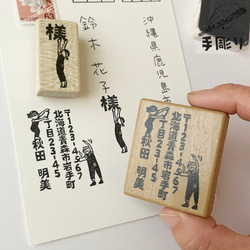 63
沖縄県鹿児島市
鈴木 花子様
様
〒123-4567
北海道青森市岩手町
丁目23-45
秋田 明美
〒123-4567
北海道青森市岩手町
丁目23-45
秋田 明美
手彫り